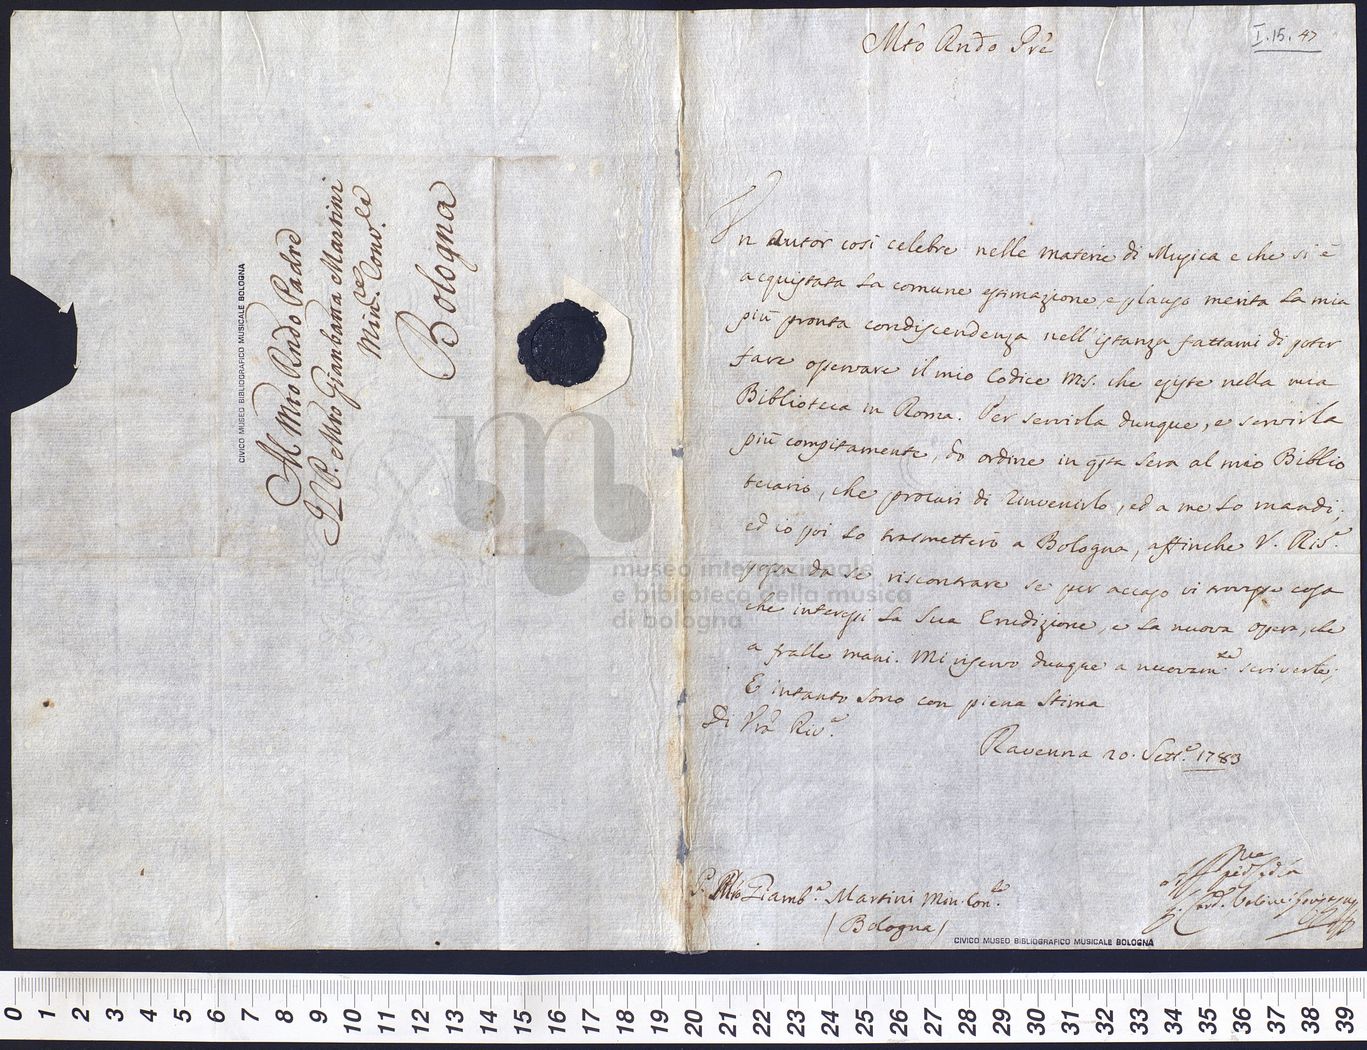 Al Mto Rndo Padre
Il P. Mro Giambatta Martini
Min.e Conv.le
Bologna
CIVICO MUSEO BIBLIOGRAFICO MUSICALE BOLOGNA
I.15.47
Mto Rndo Pre
Un autor così celebre nelle materie di Musica e che si è
acquistata la comune estimazione, e plauso merita la mia
più pronta condiscendenza nell'istanza fattami di poter
fare osservare il mio Codice Ms. che esiste nella mia
Biblioteca in Roma. Per servirla dunque, e servirla
più compitamente, do ordine in qsta sera al mio Biblio
tecario, che procuri di rinvenirlo, ed a me lo mandi;
ed io poi lo trasmetterò a Bologna, affinche V. Riv.
possa da se riscontrare se per accaso vi trovasse cosa
che interessi la sua Erudizione, e la nuova opera, che
a fralle mani. Mi riservo dunque a nuovam.te scriverle;
E intanto sono con piena stima
Di Vra Riv.a
Ravenna 20. Sett.e 1783
P. Mro Giamb.a Martini Min. Con.le
(Bologna)
museo internazionale
e biblioteca della musica
di bologna
CIVICO MUSEO BIBLIOGRAFICO MUSICALE BOLOGNA
0 1 2 3 4 5 6 7 8 9 10 11 12 13 14 15 16 17 18 19 20 21 22 23 24 25 26 27 28 29 30 31 32 33 34 35 36 37 38 39